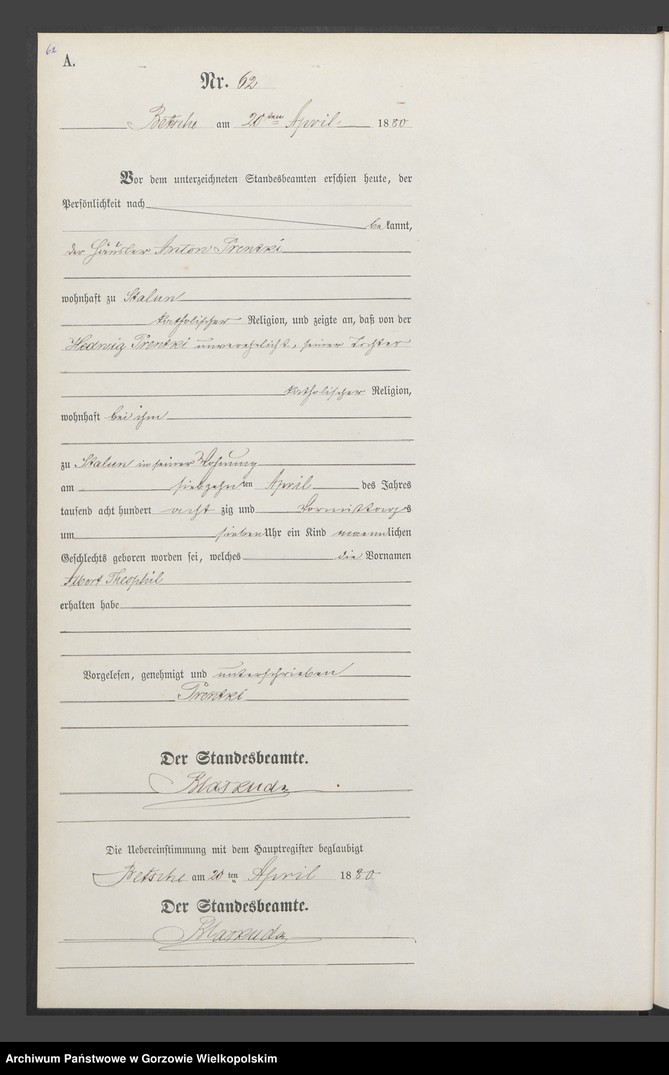 62
A.
Nr. 62
Betsche am 20 ten April 1880
Vor dem unterzeichneten Standesbeamten erschien heute, der
Persönlichkeit nach
bekannt,
der Häusler Anton Prentki
wohnhaft zu Stalun
katholischer Religion, und zeigte an, daß von der
Hedwig Prentki unverehelicht, seiner Tochter
katholischer Religion,
wohnhaft bei ihm
zu Stalun in seiner Wohnung
am siebzehn ten April des Jahres
tausend acht hundert acht zig und Vormittags
um sieben Uhr ein Kind maennlichen
Geschlechts geboren worden sei, welches die Vornamen
Albert Theophil
erhalten habe
Vorgelesen, genehmigt und unterschrieben
Prentki
Der Standesbeamte.
Die Uebereinstimmung mit dem Hauptregister beglaubigt
Betsche am 20 ten April 1880
Der Standesbeamte.
Archiwum Państwowe w Gorzowie Wielkopolskim